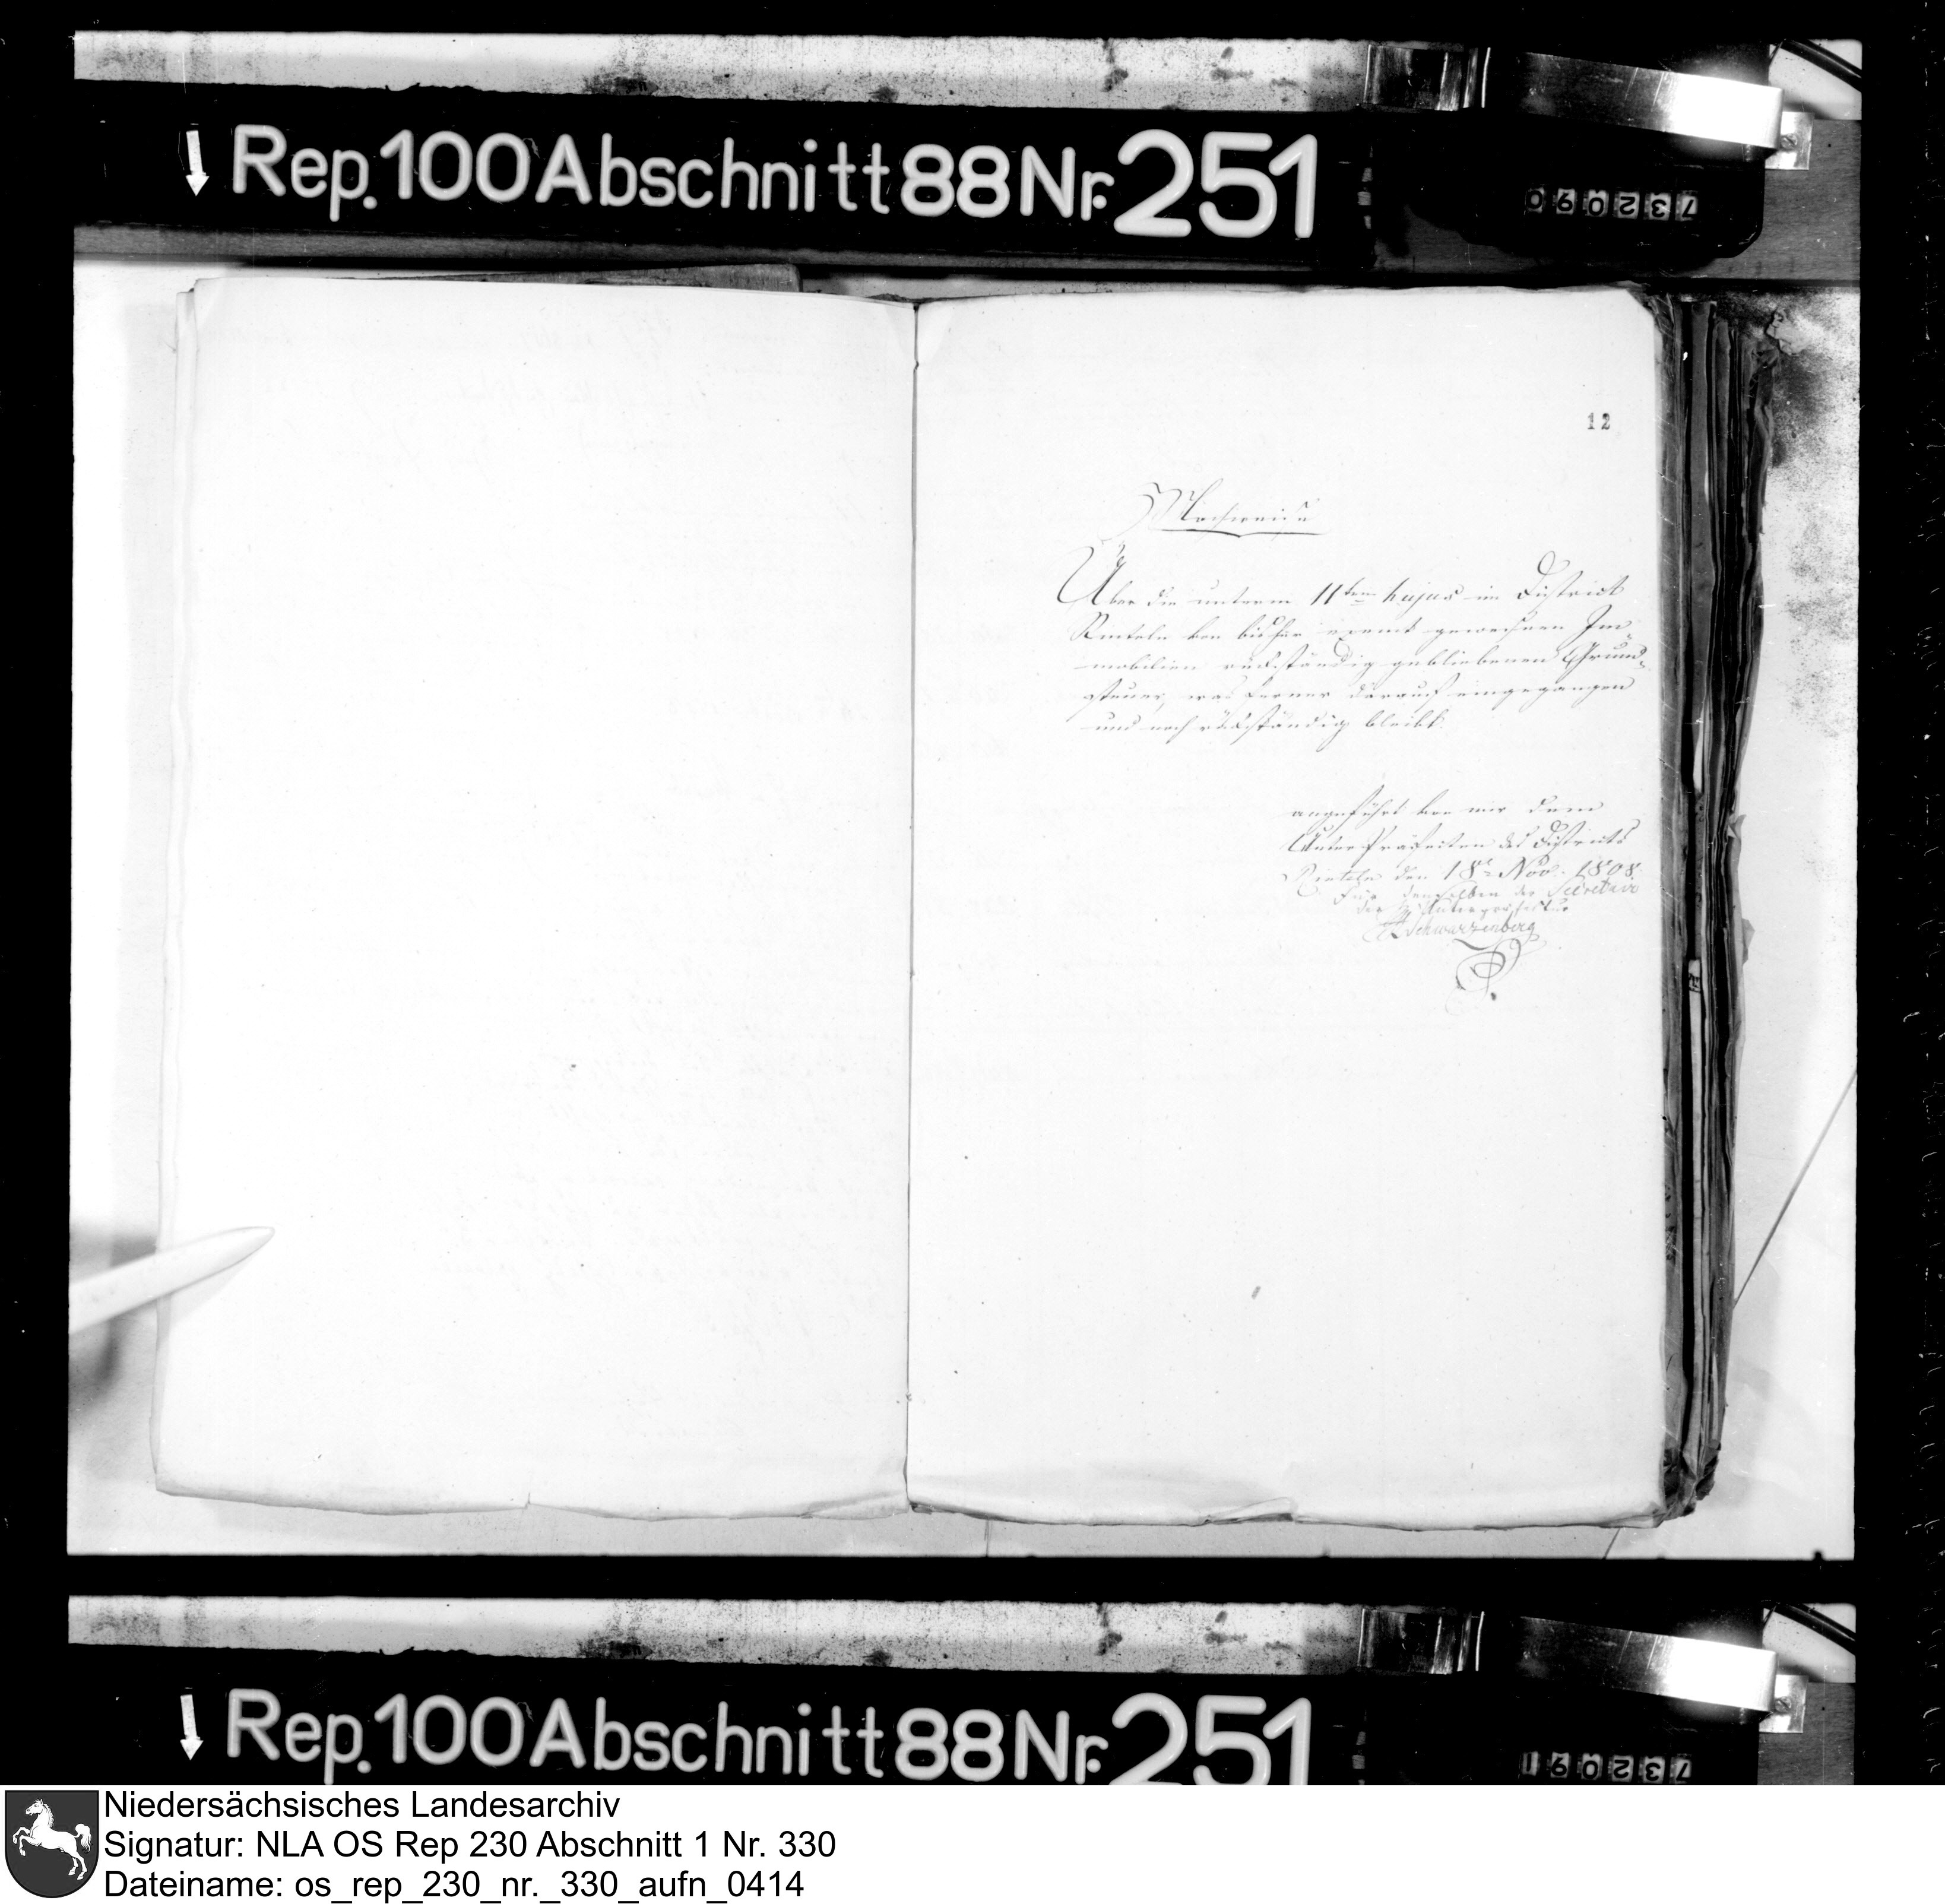 Rep. 100 Abschnitt 88 Nr. 251
732090
12
Nachweise
Über die unterm 11ten hujus im District
Rinteln von bisher exemt gewesenen Im-
mobilien rückständig gebliebenen Grund-
steuer, was ferner darauf eingegangen
und noch rückständig bleibt.
angeführt von mir dem
Unter-Präfecten des Districts
Rinteln den 18t Nov. 1808.
Für denselben der Secretair
der Unterpräfectur
Schwarzenberg
Rep. 100 Abschnitt 88 Nr. 251
732091
Niedersächsisches Landesarchiv
Signatur: NLA OS Rep 230 Abschnitt 1 Nr. 330
Dateiname: os_rep_230_nr._330_aufn_0414